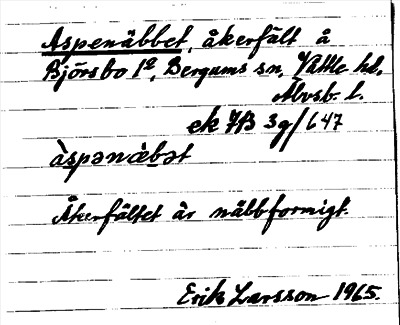 Aspenäbbet, åkerfält å
Björsbo 1º, Bergums sn, Vättle hd,
Älvsb. l.
ek 7B 3g/647
àspənæ̀bət
Åkerfältet är näbbformigt.
Erik Larsson 1965.